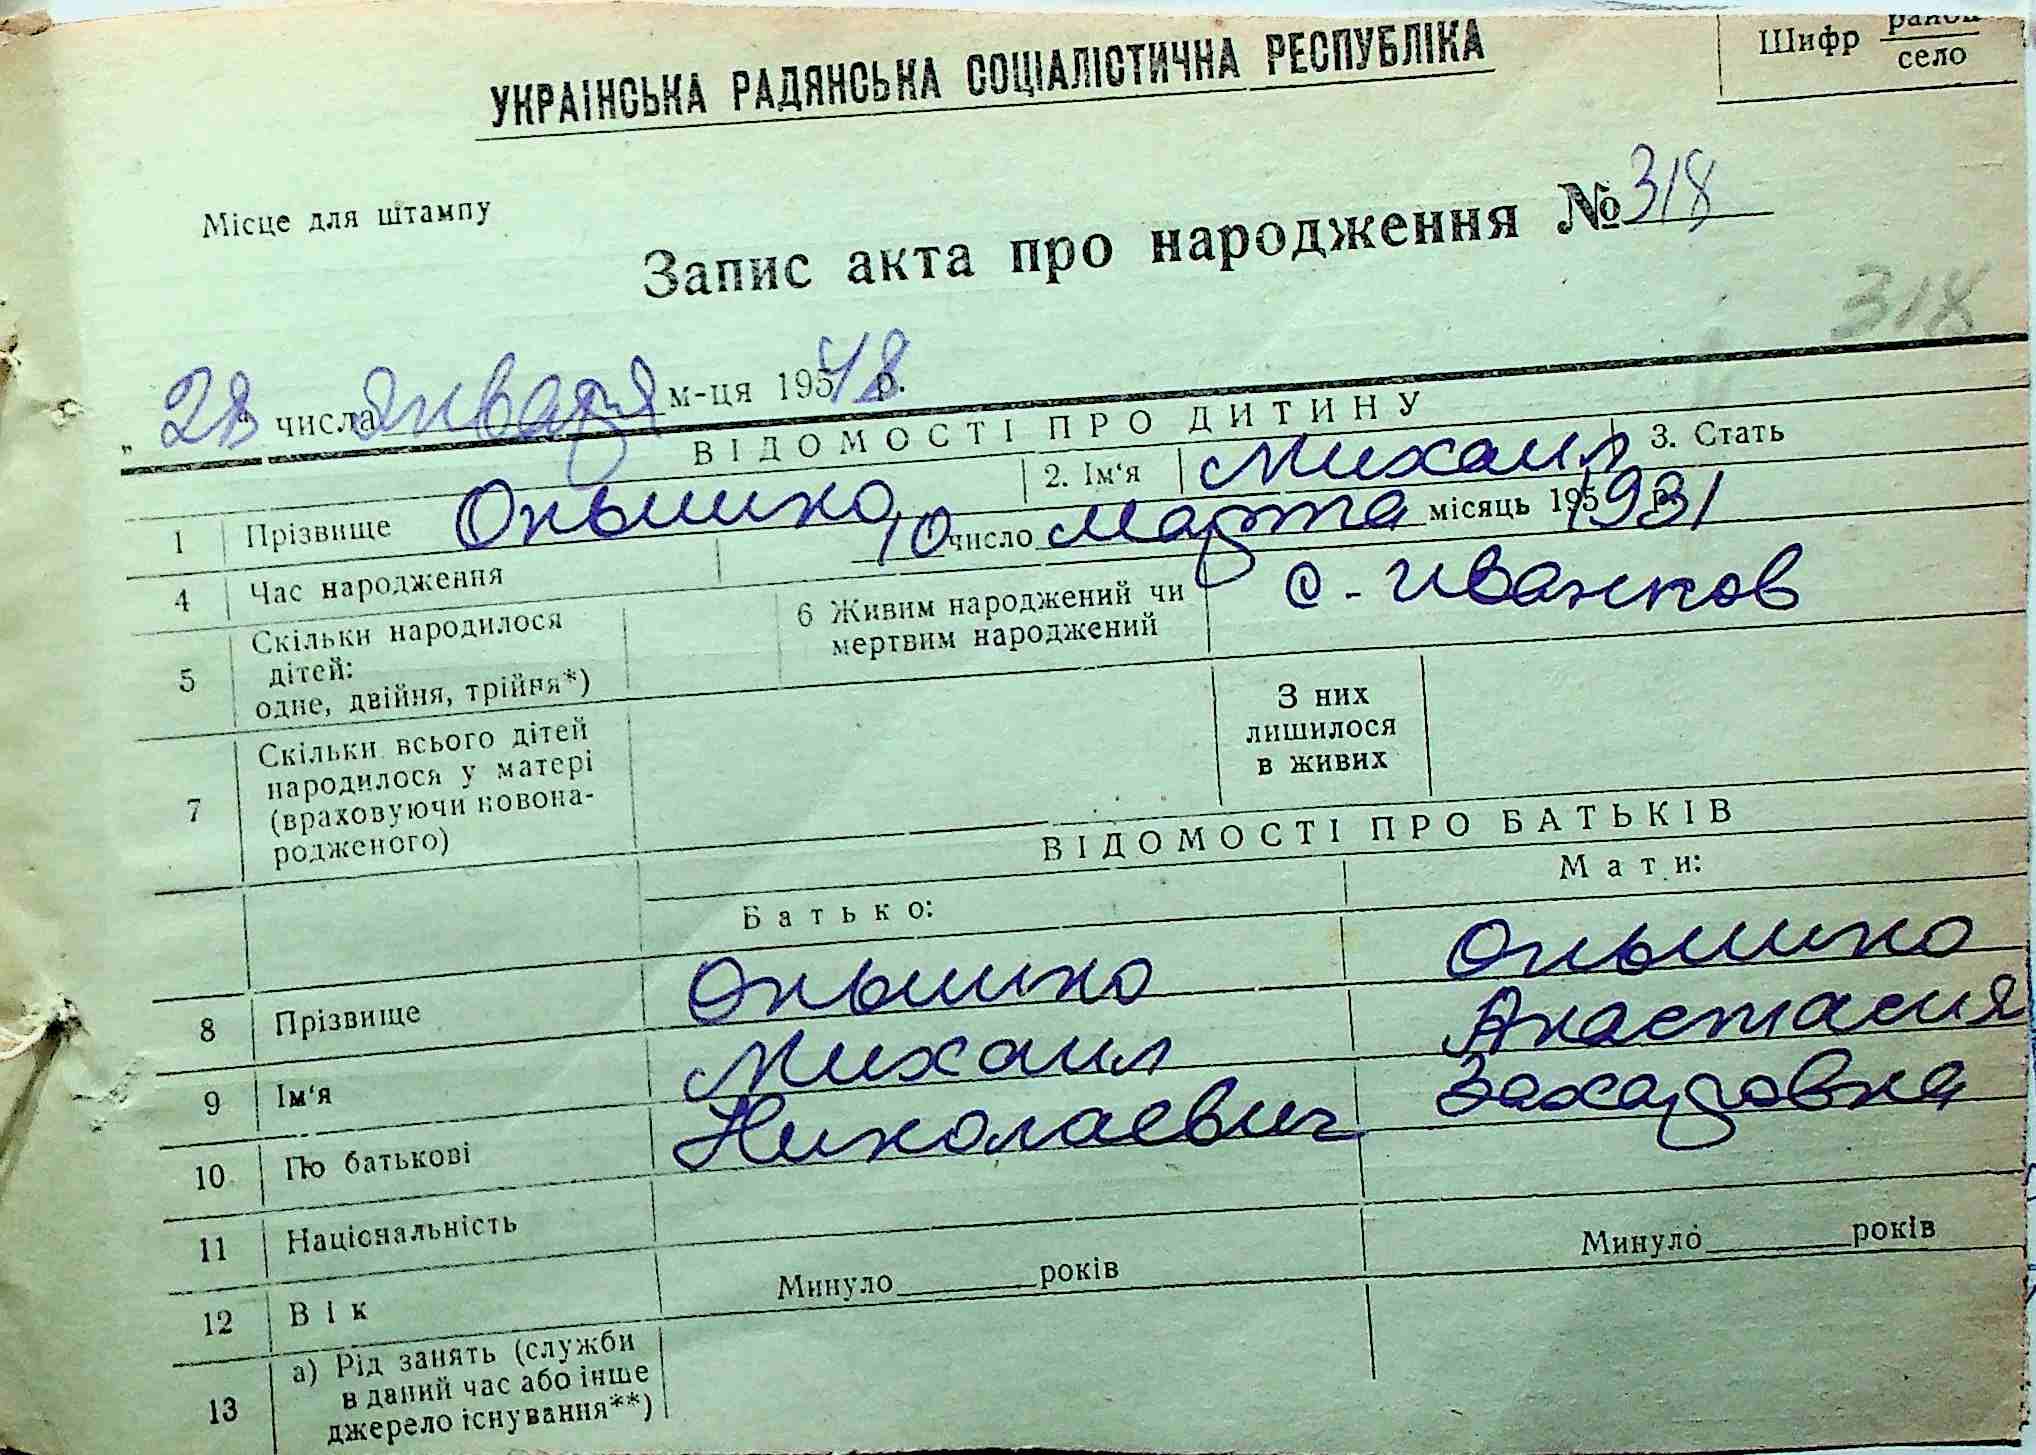 Шифр район
село
УКРАЇНСЬКА РАДЯНСЬКА СОЦІАЛІСТИЧНА РЕСПУБЛІКА
Місце для штампу
Запис акта про народження № 318
318
„ 28 " числа января м-ця 195 48 р.
ВІДОМОСТІ ПРО ДИТИНУ
1 Прізвище Онышко 2. Ім'я Михаил 3. Стать
4 Час народження 10 число марта місяць 195 1931 р.
5 Скільки народилося дітей: одне, двійня, трійня*) 6 Живим народжений чи мертвим народжений с. Иванков
7 Скільки всього дітей народилося у матері (враховуючи новона-родженого) З них лишилося в живих
ВІДОМОСТІ ПРО БАТЬКІВ
Батько: Мати:
8 Прізвище Онышко Онышко
9 Ім'я Михаил Анастасия
10 По батькові Николаевич Захаровна
11 Національність
12 Вік Минуло років Минуло років
13 а) Рід занять (служби
в даний час або інше
джерело існування**)